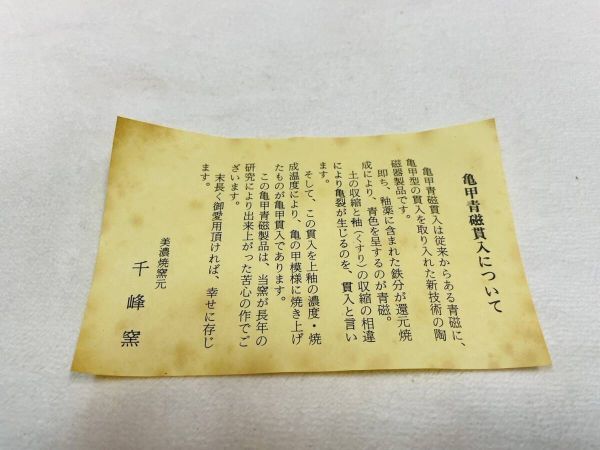 亀甲青磁貫入について
亀甲青磁貫入は従来からある青磁に、
亀甲型の貫入を取り入れた新技術の陶
磁器製品です。
即ち、釉薬に含まれた鉄分が還元焼
成により、青色を呈するのが青磁。
土の収縮と釉（くすり）の収縮の相違
により亀裂が生じるのを、貫入と言い
ます。
そして、この貫入を上釉の濃度・焼
成温度により、亀の甲模様に焼き上げ
たものが亀甲貫入であります。
この亀甲青磁製品は、当窯が長年の
研究により出来上がった苦心の作でご
ざいます。
末長く御愛用頂ければ、幸せに存じ
ます。
美濃焼窯元
千峰窯